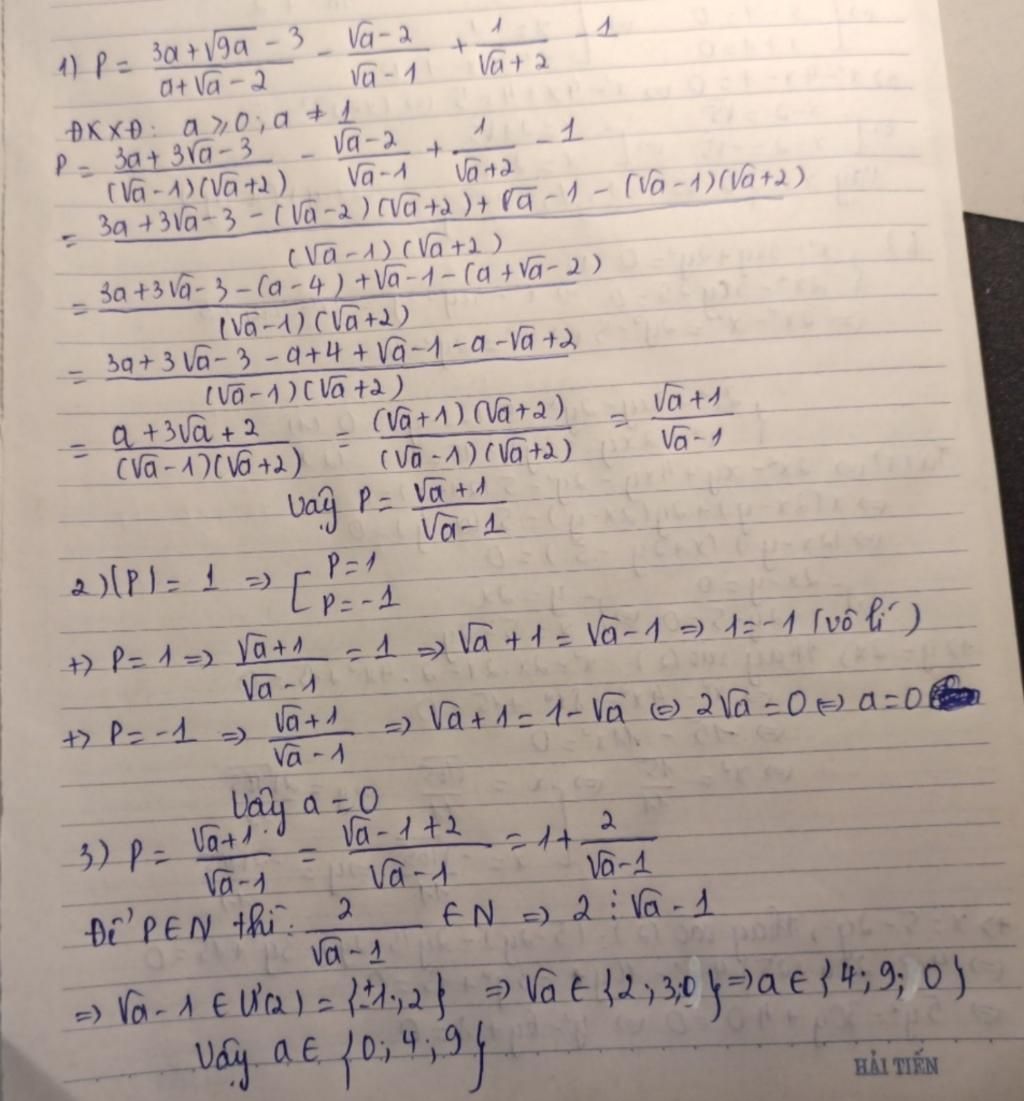 1) P = \frac{3a+\sqrt{9a}-3}{a+\sqrt{a}-2} - \frac{\sqrt{a}-2}{\sqrt{a}-1} + \frac{1}{\sqrt{a}+2} - 1
ĐKXĐ: a ≥ 0; a ≠ 1
P = \frac{3a+3\sqrt{a}-3}{(\sqrt{a}-1)(\sqrt{a}+2)} - \frac{\sqrt{a}-2}{\sqrt{a}-1} + \frac{1}{\sqrt{a}+2} - 1
= \frac{3a+3\sqrt{a}-3-(\sqrt{a}-2)(\sqrt{a}+2)+\sqrt{a}-1-(\sqrt{a}-1)(\sqrt{a}+2)}{(\sqrt{a}-1)(\sqrt{a}+2)}
= \frac{3a+3\sqrt{a}-3-(a-4)+\sqrt{a}-1-(a+\sqrt{a}-2)}{(\sqrt{a}-1)(\sqrt{a}+2)}
= \frac{3a+3\sqrt{a}-3-a+4+\sqrt{a}-1-a-\sqrt{a}+2}{(\sqrt{a}-1)(\sqrt{a}+2)}
= \frac{a+3\sqrt{a}+2}{(\sqrt{a}-1)(\sqrt{a}+2)} = \frac{(\sqrt{a}+1)(\sqrt{a}+2)}{(\sqrt{a}-1)(\sqrt{a}+2)} = \frac{\sqrt{a}+1}{\sqrt{a}-1}
Vậy P = \frac{\sqrt{a}+1}{\sqrt{a}-1}
2) |P| = 1 ⇒ [ P=1
P=-1
+> P = 1 ⇒ \frac{\sqrt{a}+1}{\sqrt{a}-1} = 1 ⇒ \sqrt{a}+1 = \sqrt{a}-1 ⇒ 1=-1 (vô lí)
+> P = -1 ⇒ \frac{\sqrt{a}+1}{\sqrt{a}-1} ⇒ \sqrt{a}+1 = 1-\sqrt{a} ⇔ 2\sqrt{a} = 0 ⇔ a=0
Vậy a = 0
3) P = \frac{\sqrt{a}+1}{\sqrt{a}-1} = \frac{\sqrt{a}-1+2}{\sqrt{a}-1} = 1 + \frac{2}{\sqrt{a}-1}
Để P ∈ N thì: \frac{2}{\sqrt{a}-1} ∈ N ⇒ 2 ⋮ \sqrt{a}-1
⇒ \sqrt{a}-1 ∈ Ư(2) = {±1; 2} ⇒ \sqrt{a} ∈ {2; 3; 0} ⇒ a ∈ {4; 9; 0}
Vậy a ∈ {0; 4; 9}
HẢI TIẾN